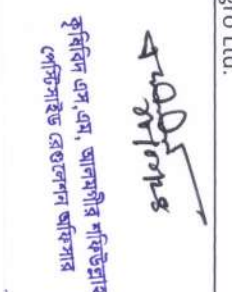 gro Ltd.
কৃষিবিদ এস.এম. আলমগীর শফিউল্লাহ
পেস্টিসাইড রেগুলেশন অফিসার